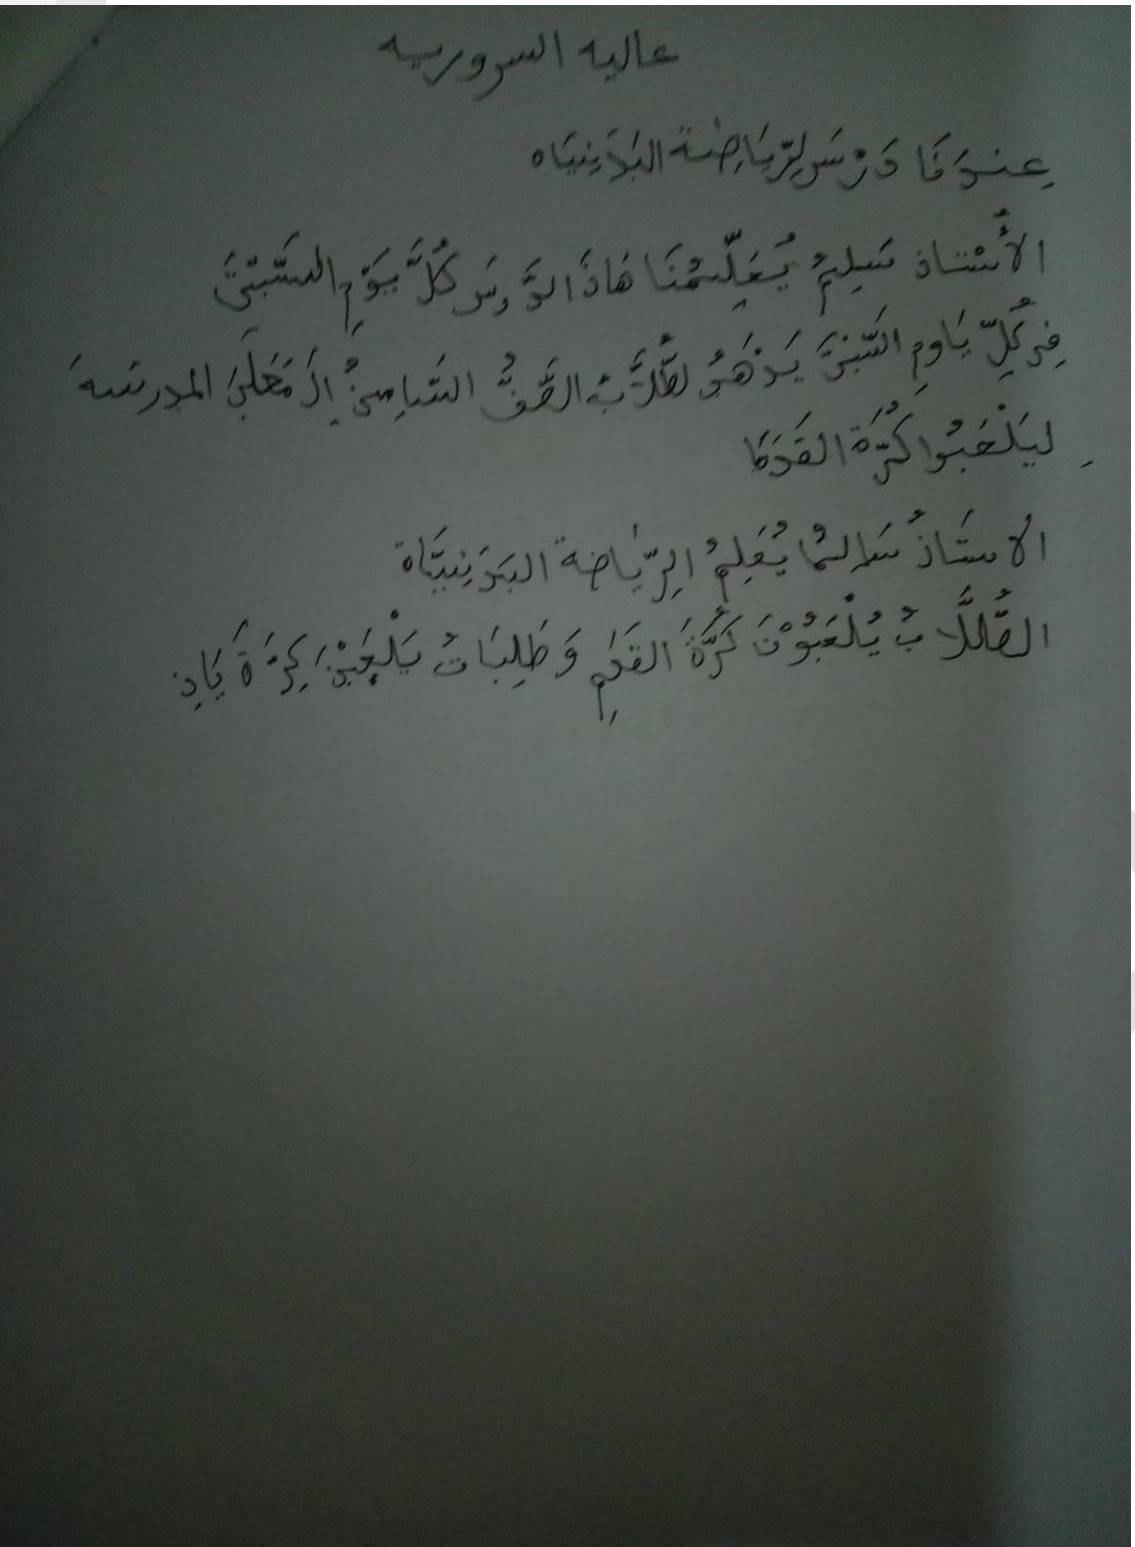 عاليه السروريه
عِندَنَا دَرْسَ لِرِّيَاضَة البَدَنِيَاه
الأُسْتَاذ سَلِيمُ يُعَلِّمُنَا هَاذَا الدَّرسَ كُلَّ يَوْمِ السَّبْتَ
فِي كُلِّ يَاومِ السَّبْتَ يَذْهَبُ لطُّلَّابُ الصَّفُّ السَّادِسُ إِلَ مَعَلَبَ المدرسَه
لِيَلْعَبُوا كُرَّةُ القَدَمَا
الاُستَاذُ سَالمُ يُعَلِمُ الرِّيَاضة البَدَنِيَّاة
الطُّللَّابُ يُلْعَبُوْنَ كُرَّةَ القَدَمِ وَ طَلِبَاتُ يَلْعَبْنَ كِرَةَ يَادِ